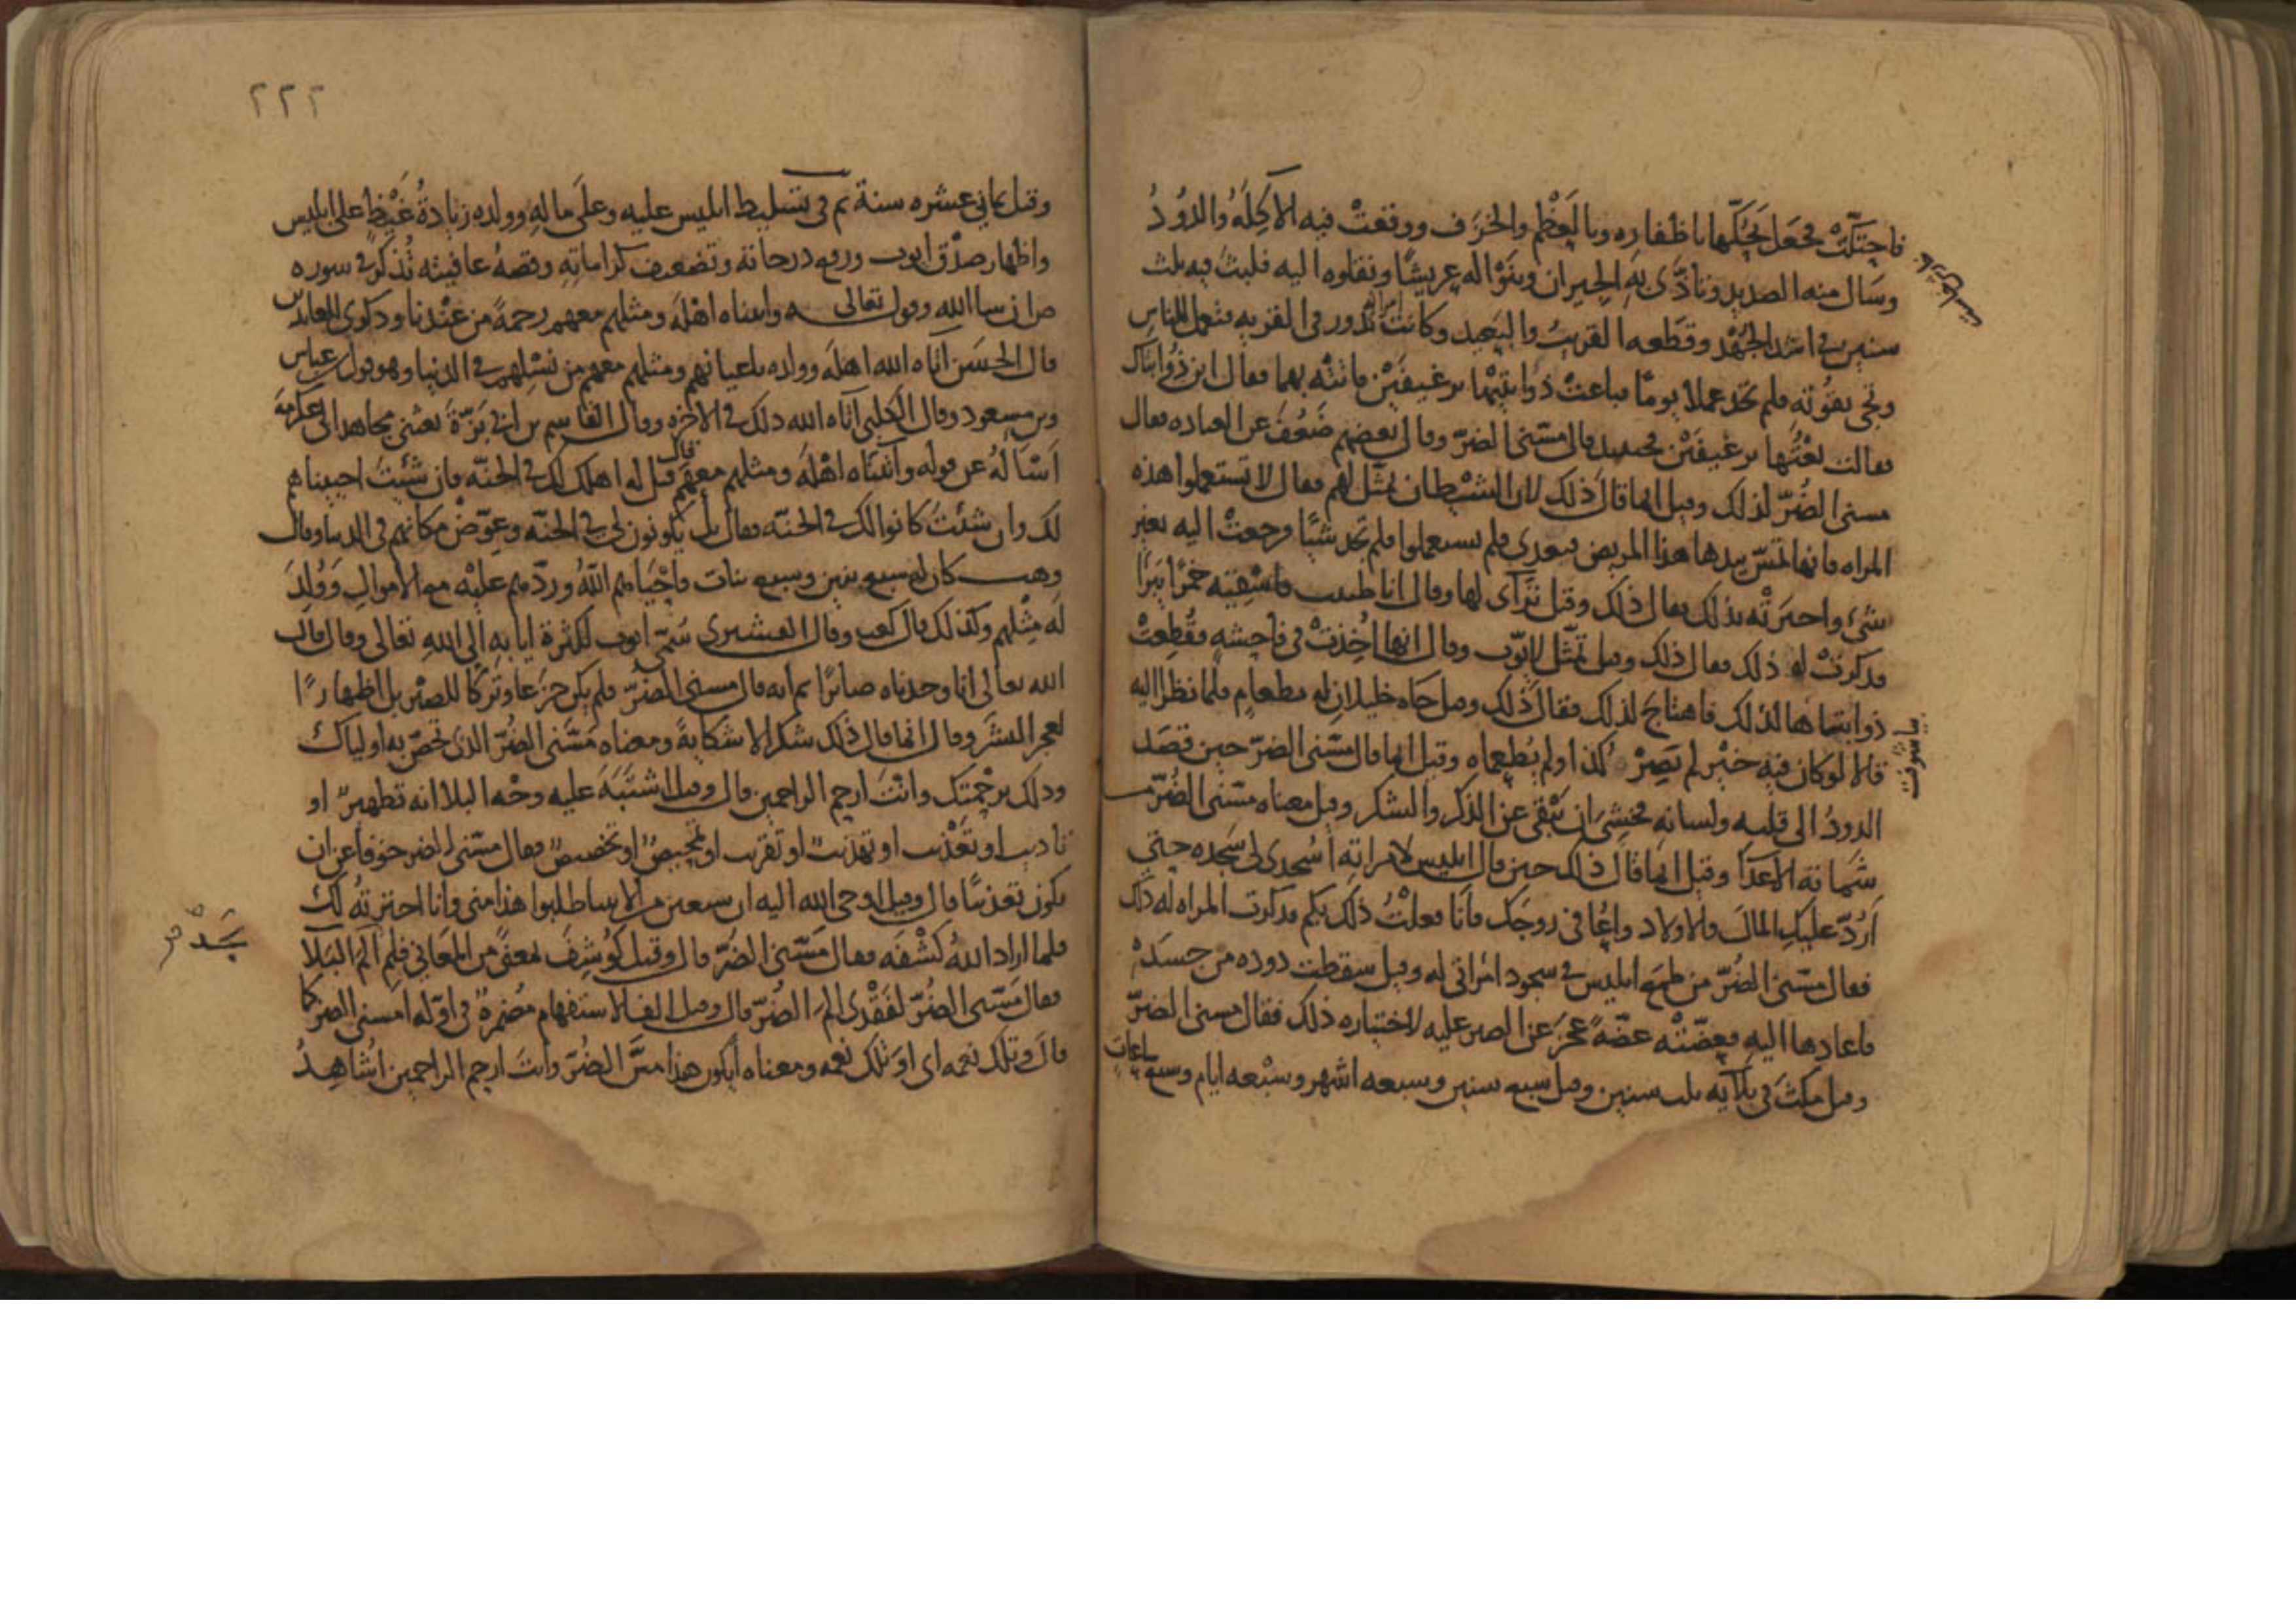 فاحتكّت فجعل يحكّها باظفاره وبالعظم والخزف ووقعت فيه الاكلة والدّود
وسال منه الصديد وتأذّى به الجيران وبنوا له عريشا ونقلوه اليه فلبث فيه ثلث
سنين في اشد الجهد وقطعه القريب والبعيد وكانت امرأته تدور في القرية فتعمل للناس
وتجئ بقوته فلم تجد عملا يوما فباعت ذوابتيها برغيفين فاتته بهما فقال اين ذوابتاك
فقالت بعتها برغيفين فحينئذ قال مسّنى الضرّ وقال بعضهم ضعف عن العباده فقال
مسنى الضّر لذلك وقيل انما قال ذلك لان الشيطان تمثّل لهم فقال لا تستعملوا هذه
المراه فانها تمسّ بيدها هذا المريض فيعدى فلم يستعملوا فلم تجد شيئا ورجعت اليه بغير
شئ واخبرته بذلك فقال ذلك وقيل تراآى لها وقال انا طبيب فاسقيه خمرا يبرا
فذكرت له ذلك فقال ذلك وقيل تمثّل لايّوب وقال انها اخذت في فاحشه فقطعت
ذوابتاها لذلك فاهتاج لذلك فقال ذلك وقيل جاه خليلان له بطعام فلما نظرا اليه
قالا لو كان فيه خير لم يصر كذا ولم يطعماه وقيل انما قال مسّنى الضرّ حين قصد
الدود الى قلبه ولسانه فخشى ان يبقى عن الذكر والشكر وقيل معناه مسّنى الضّرّ من
شماتة الاعدآ وقيل انما قال ذلك حين قال ابليس لامراته اسجدى لى سجده حتى
اردّ عليك المال والاولاد واعافى زوجك فانا فعلت ذلك بكم فذكرت المراه له ذلك
فقال مسّنى الضّرّ من طمع ابليس في سجود امراتى له وقيل سقطت دوده من جسده
فاعادها اليه فعضّته عضّة عجز عن الصبر عليه لاختياره ذلك فقال مسنى الضرّ
وقيل مكث في بلآيه ثلث سنين وقيل سبع سنين وسبعه اشهر وسبعه ايام وسبع ساعات
٢٢٢
وقيل ثماني عشره سنة ثم في تسليط ابليس عليه وعلى ماله وولده زيادة غيظ على ابليس
واظهار صدق ايوب ورفع درجاته وتضعيف كراماته وقصة عافيته تذكر في سوره
ص ان سا الله وقول تعالى واتيناه اهله ومثلهم معهم رحمة من عندنا وذكرى للعابدين
قال الحسن اتاه الله اهله وولده باعيانهم ومثلهم معهم من نسلهم في الدنيا وهو قول ابن عباس
وبن مسعود وقال الكلبى آتاه الله ذلك في الآخره وقال القاسم بن ابي بزّة بعثنى مجاهد الى عكرمة
اسأله عن قوله وآتيناه اهله ومثلهم معهم قال قيل له اهلك لك في الجنّه فان شئت احييناهم
لك وان شئت كانوا لك في الجنّه فقال بل يكونون لى في الجنّه وعوّض مكانهم في الدنيا وقال
وهب كان له سبع بنين وسبع بنات فاحياهم الله وردّهم عليه مع الاموال وولد
له مثلهم وكذلك قال كعب وقال القشيرى سمّى ايوب لكثرة ايابه الى الله تعالى وقال قال
الله تعالى انا وجدناه صابرا ثم انه قال مسنى الضّرّ فلم يكن جزعا وتركا للصبر بل اظهارًا
لعجز البشر وقال انما قال ذلك شكرا لا شكاية ومعناه مسّنى الضّرّ الذى تخصّ به اولياك
وذلك برحمتك وانت ارحم الراحمين قال وقيل اشتبه عليه وجه البلا انه تطهير او
تاديب او تعذيب او تهذيب او تقريب او تمحيص او تخصيص فقال مسّنى الضر خوفا عن ان
يكون تعذيبا قال وقيل اوحى الله اليه ان سبعين من الانبيا طلبوا هذا منى وانا اخترته لك
فلما اراد الله كشفه فقال مسّنى الضّرّ قال وقيل كوشف بمعنى من المعاني فلم الم البلا
فقال مسّنى الضّرّ لفقدى الم الضّرّ قال وقيل الف الاستفهام مضمرة في اوّله امسنى الضر كما
قال وتلك نعمه اى او تلك نعمه ومعناه ايكون هذا مسّ الضّرّ وانت ارحم الراحمين اشاهد